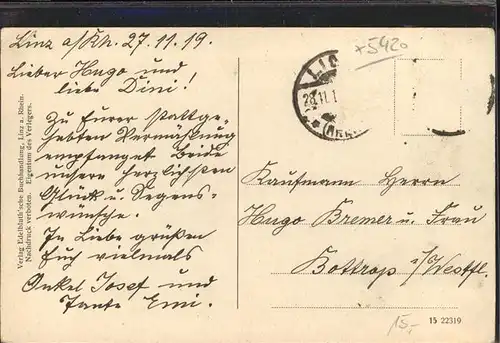 Linz a/Rh. 27.11.19.
Lieber Hugo und
liebe Dini!
Zu Eurer stattge-
habten Vermählung
empfanget Beide
unsere herzlichsten
Glück u. Segens-
wünsche.
In Liebe grüßen
Euch vielmals
Onkel Josef und
Tante Emi.
Verlag Edelbluth'sche Buchhandlung, Linz a. Rhein.
Nachdruck verboten. Eigentum des Verlegers.
+5420
28.11.1
Kaufmann Herrn
Hugo Bremer u. Frau
Bottrop i/Westfl.
15.-
15 22319